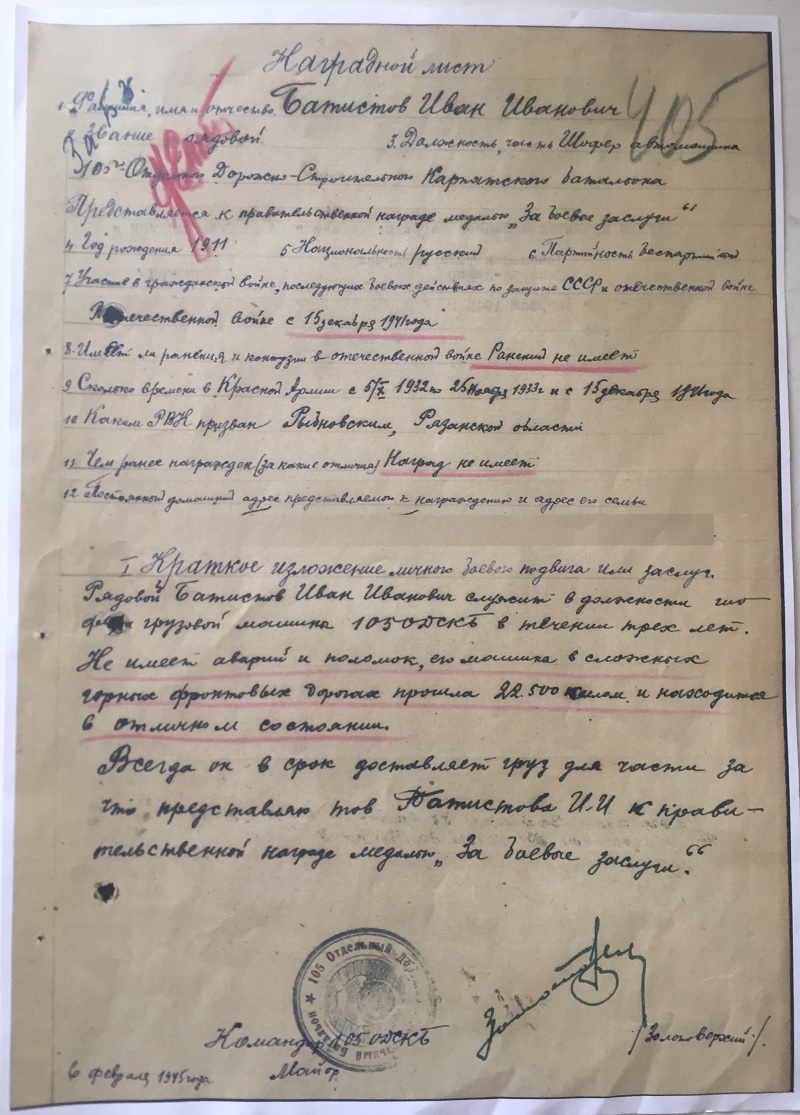 Наградной лист
405
1. Фамилия, имя и отчество Батистов Иван Иванович
2 Звание рядовой 3. Должность, часть Шофер автомашина
105го Отдельного Дорожно-Строительного Карпатского батальона
Представляется к правительственной награде медалью „За боевые заслуги“
4 Год рождения 1911 5 Национальность русский 6 Партийность беспартийный
7 Участие в гражданской войне, последующих боевых действиях по защите СССР и отечественной войне
В отечественной войне с 15 декабря 1941 года
8. Имеет ли ранения и контузии в отечественной войне Ранений не имеет
9 Сколько времени в Красной Армии с 5/X 1932 по 25 Ноября 1933г и с 15 декабря 1941 года
10 Каким РВК призван Рыбновским, Рязанской области
11 Чем ранее награжден (за какие отличия) Наград не имеет
12 Постоянный домашний адрес представляемого к награждению и адрес его семьи
I Краткое изложение личного боевого подвига или заслуг.
Рядовой Батистов Иван Иванович служит в должности шо
фера грузовой машина 105 ОДСКБ в течении трех лет.
Не имеет аварий и поломок, его машина в сложных
горных фронтовых дорогах прошла 22.500 килом. и находится
в отличном состоянии.
Всегда он в срок доставляет груз для части за
что представляю тов Батистова И.И к прави-
тельственной награде медалью „За боевые заслуги.“
105 Отдельный
Батальон
Командир 105 ОДСКБ /Золотоверхий/.
Майор
6 февраля 1945 года